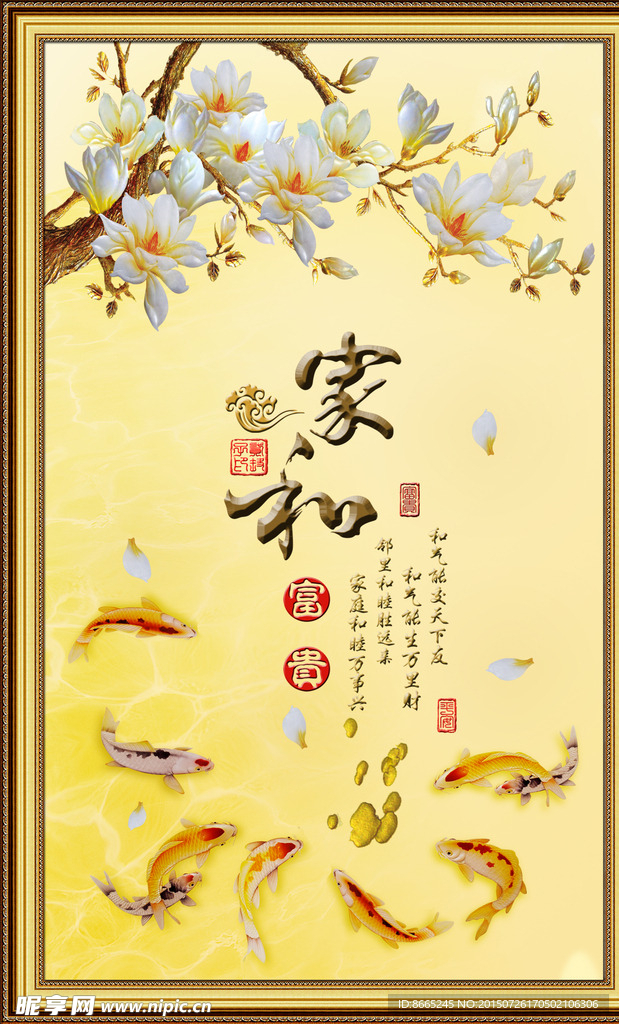 家和
富
貴
富貴
和气能交天下友
和气能生万里财
邻里和睦胜远亲
家庭和睦万事兴
昵享网 www.nipic.cn
ID:8665245 NO:20150726170502106306